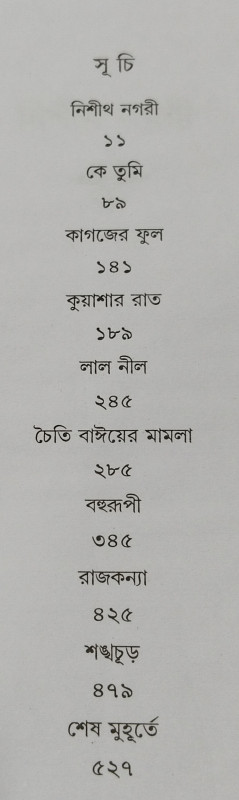 সূ চি
নিশীথ নগরী
১১
কে তুমি
৮৯
কাগজের ফুল
১৪১
কুয়াশার রাত
১৮৯
লাল নীল
২৪৫
চৈতি বাঈয়ের মামলা
২৮৫
বহুরূপী
৩৪৫
রাজকন্যা
৪২৫
শঙ্খচূড়
৪৭৯
শেষ মুহূর্তে
৫২৭